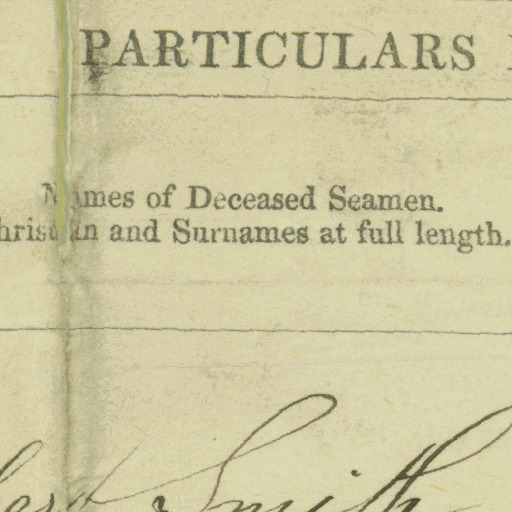 PARTICULARS
Names of Deceased Seamen.
Christian and Surnames at full length.
Smith